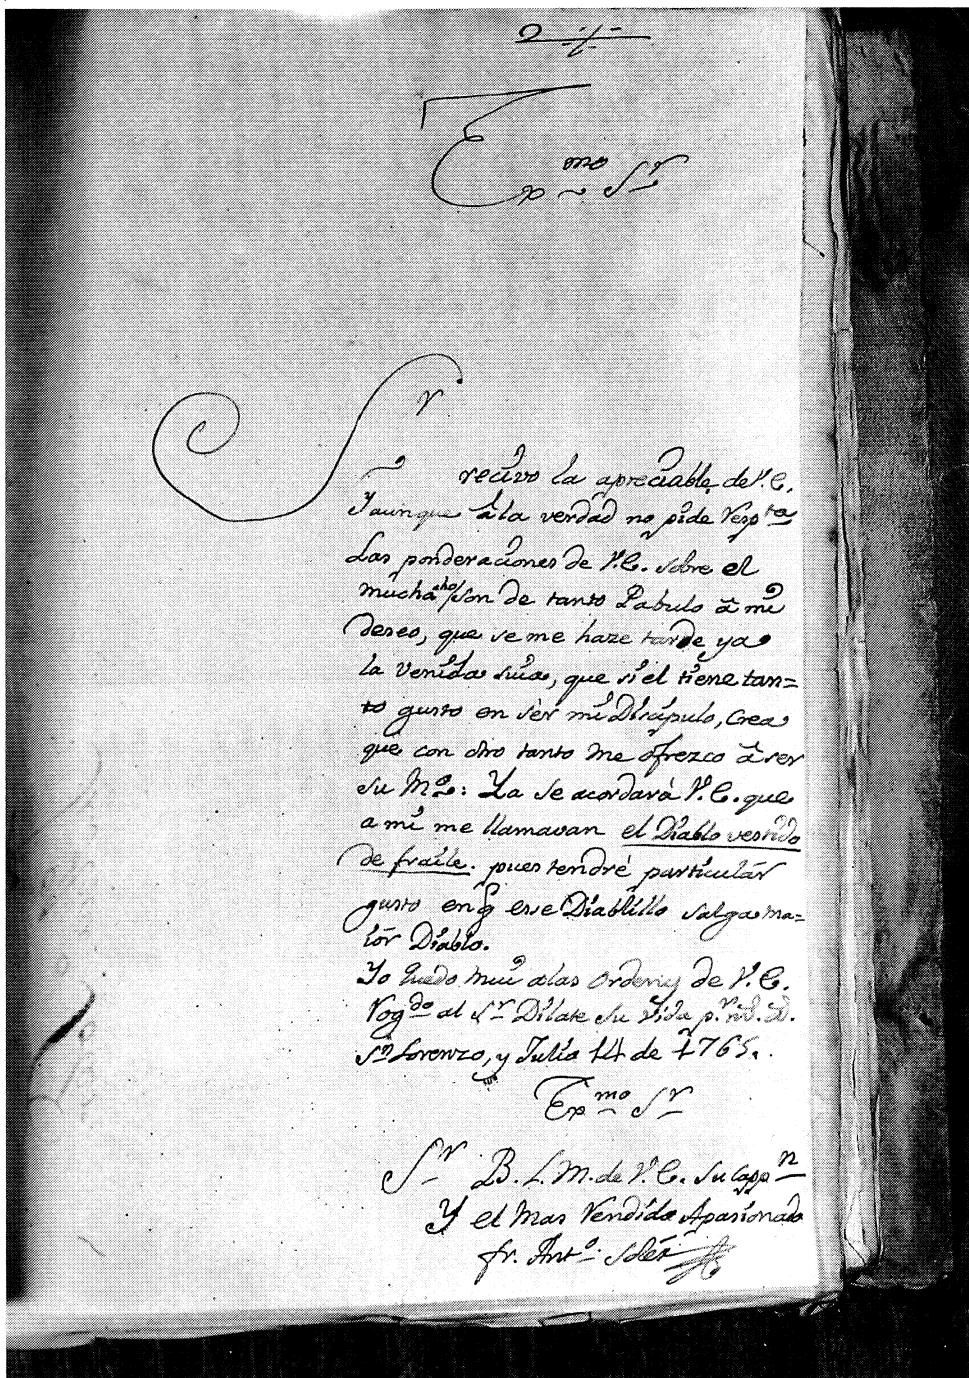 2
Exmo Sr
Sr
recivo la apreciable de V.E.
Y aunque â la verdad no pide Respta
Las ponderaciones de V.E. sobre el
muchacho son de tanto Pabulo â mi
deseo, que se me haze tarde ya
la venida suia, que si el tiene tan=
to gusto en ser mi Discipulo, Crea
que con otro tanto me ofrezco â ser
su Mo: Ya se acordará V.E. que
a mi me llamavan el Diablo vestido
de fraile. pues tendré particular
gusto en q̃ ese Diablillo salga ma=
ior Diablo.
Yo quedo mui a las ordenes de V.E.
Rogdo al Sr Dilate su vida
Sn Lorenzo, y Julio 14 de 1765.
Exmo Sr
Sr B. L. M. de V.E. su Cappn
Y el mas Rendido Apasionado
fr. Anto. Solér